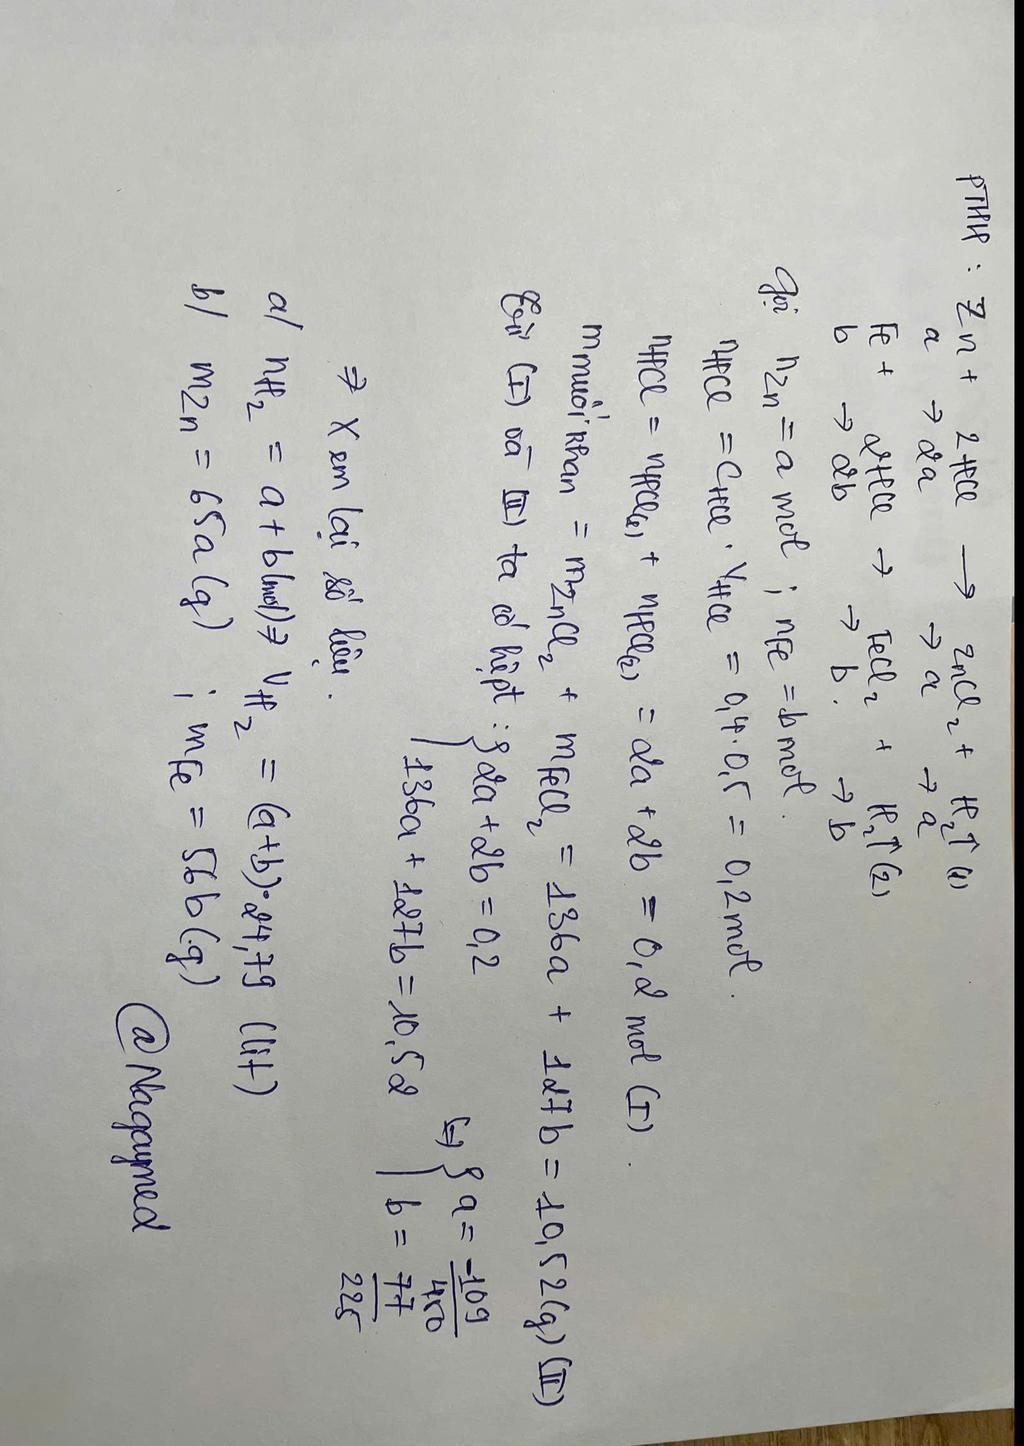 PTHH : Zn + 2HCl → ZnCl2 + H2↑ (1)
a → 2a → a → a
Fe + 2HCl → FeCl2 + H2↑ (2)
b → 2b → b. → b
Gọi nZn = a mol ; nFe = b mol.
nHCl = CHCl . VHCl = 0,4.0,5 = 0,2 mol.
nHCl = nHCl(1) + nHCl(2) = 2a + 2b = 0,2 mol (I).
mmuối khan = mZnCl2 + mFeCl2 = 136a + 127b = 10,52(g) (II)
Từ (I) và (II) ta có hệpt : { 2a + 2b = 0,2 (=) { a = -109/450
136a + 127b = 10,52 b = 77/225
=> Xem lại số liệu.
a/ nH2 = a + b(mol) => VH2 = (a+b).24,79 (lít)
b/ mZn = 65a(g) ; mFe = 56b(g)
@Nagaymed